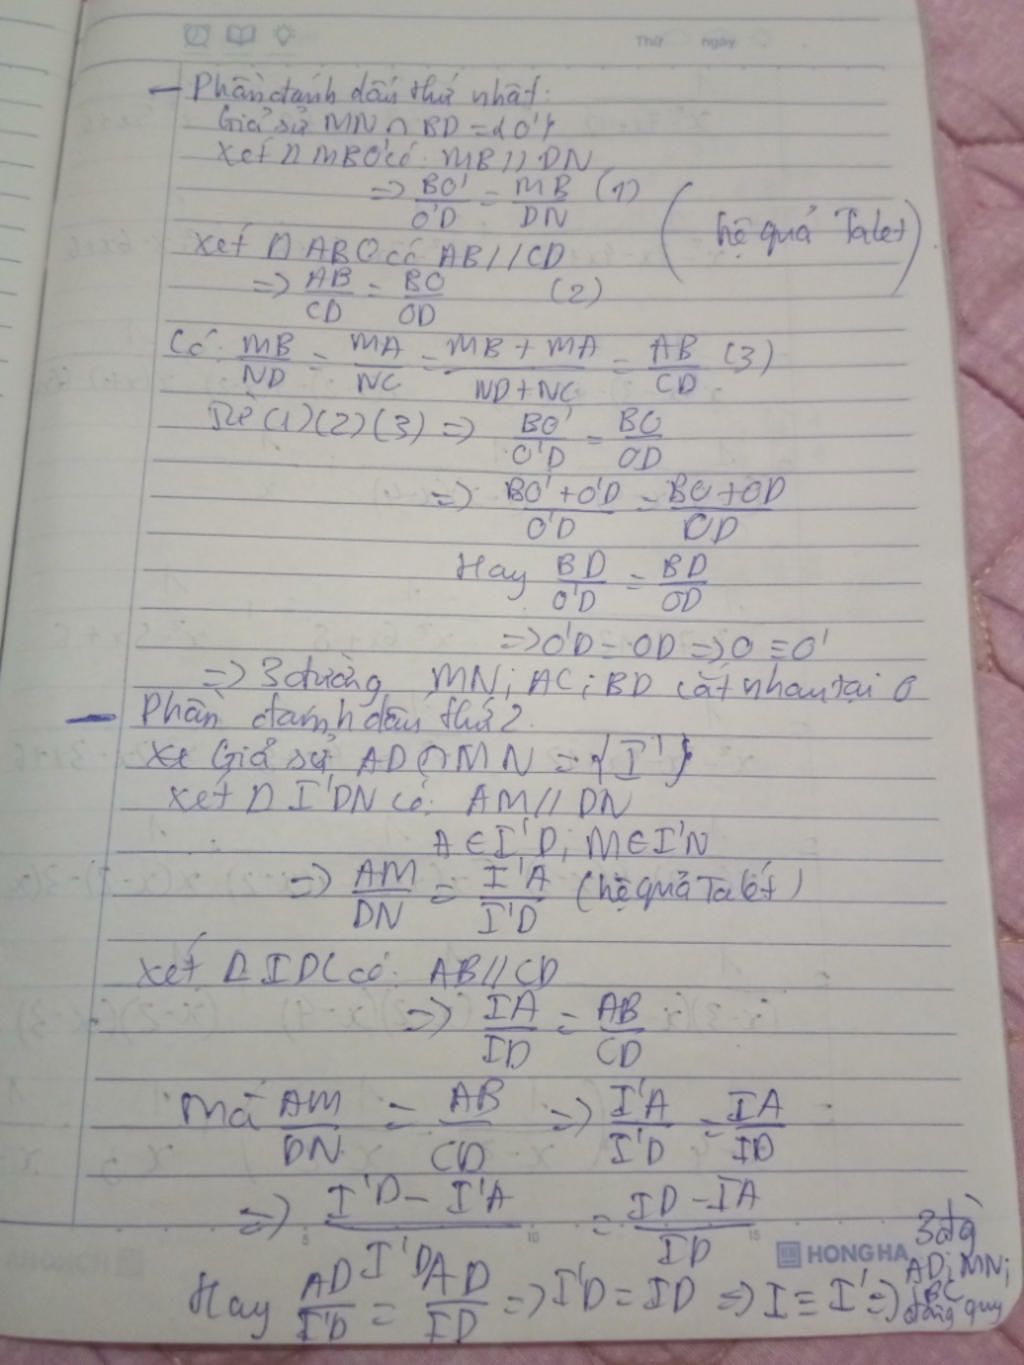 Thứ ngày
- Phần đánh dấu thứ nhất:
Giả sử MN ∩ BD = {O'}
Xét Δ MBO' có: MB // DN
=> BO'/O'D = MB/DN (1)
(hệ quả Talet)
Xét Δ ABO có AB // CD
=> AB/CD = BO/OD (2)
Có: MB/ND = MA/NC = MB + MA/ND + NC = AB/CD (3)
Từ (1)(2)(3) => BO'/O'D = BO/OD
=> BO' + O'D/O'D = BO + OD/OD
Hay BD/O'D = BD/OD
=> O'D = OD => O ≡ O'
=> 3 đường MN; AC; BD cắt nhau tại O
- Phần đánh dấu thứ 2.
Xe Giả sử AD ∩ MN = {I'}
Xét Δ I'DN có: AM // DN
A ∈ I'D; M ∈ I'N
=> AM/DN = I'A/I'D (hệ quả Talét)
Xét Δ IDC có: AB // CD
=> IA/ID = AB/CD
Mà AM/DN = AB/CD => I'A/I'D = IA/ID
=> I'D - I'A/I'D = ID - IA/ID
HONG HA
Hay AD/I'D = AD/ID => I'D = ID => I ≡ I' => 3 đg AD; MN; BC đồng quy